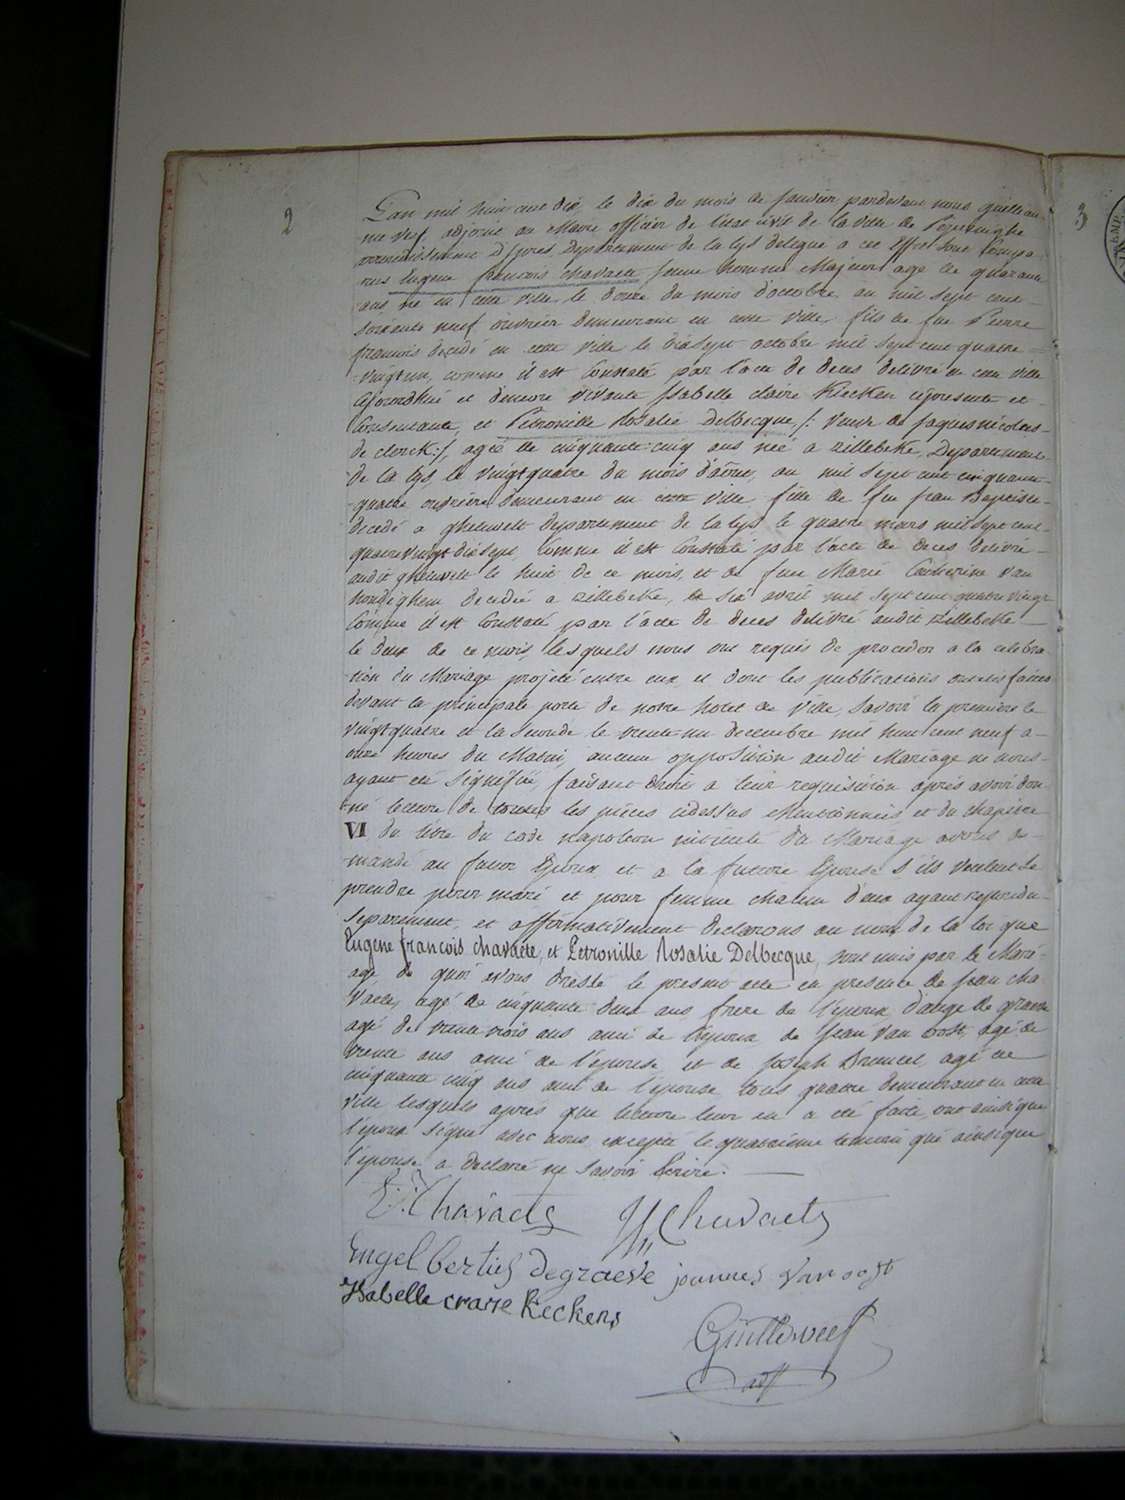 2
3
L'an mil huit cent dix le dix du mois de Janvier pardevant nous guillau-
me veuf adjoint au Maire officier de l'etat civil de la ville de Poperinghe
arrondissement D'ypres, Departement de la Lys delegué a cet effet sont Compa-
rus Eugene francois Chavaete jeune homme Majeur agé de quarante
ans né en cette ville le douze du mois d'octobre an mil sept cent
soixante neuf ouvrier demeurant en cette ville fils de feu Pierre
francois decedé en cette ville le dixsept octobre mil sept cent quatre
vingt un, comme il est Constaté par l'acte de deces delivré en cette ville
cejourdhui et d'encore vivante Isabelle claire Kiecken cipresente et
Consentante, et Petronille Rosalie Delbecque /: veuve de Jaques nicolas
de clerck :/, agée de cinquante cinq ans née a Zillebeke, Departement
de la Lys, le vingtquatre du mois d'aout, an mil sept cent cinquante
quatre ouvrière demeurant en cette ville fille de feu Jean Baptiste
decedé a gheluvelt departement de la Lys le quatre mars mil sept cent
quatre vingt dixsept, Comme il est Constaté par l'acte de deces delivré
audit gheluvelt le huit de ce mois, et de feue Marie Catherine van
houdighem decedée a Zillebeke, le six avril mil sept cent quatre vingt
Comme il est Constaté par l'acte de deces delivré audit Zillebeke
le deux de ce mois, lesquels nous ont requis de proceder a la celebra-
tion du Mariage projeté entre eux et dont les publications ont eté faites
devant la principale porte de notre hotel de ville, Savoir la première le
vingtquatre et la seconde le trente un decembre mil huit cent neuf a
onze heures du Matin, aucune opposition audit Mariage ne nous
ayant eté signifiée, faisant droit a leur requisition après avoir don-
né lecture de toutes les pièces cidessus Mentionnées et du chapitre
VI du titre du code Napoleon intitulé du Mariage avons de-
mandé au futur Epoux et a la future Epouse s'ils veulent se
prendre pour mari et pour femme chacun d'eux ayant repondu
separement, et affirmativement declarons au nom de la loi que
Eugene francois chavaete, et Petronille Rosalie Delbecque, sont unis par le Mari-
age de quoi avons dressé le present acte en presence de Jean Cha
vaete, agé de cinquante deux ans frere de l'epoux, d'ange de graeve
agé de trente trois ans ami de l'epoux de Jean Van Oost, agé de
trente ans ami de l'épouse et de Joseph agé de
cinquante cinq ans ami de l'épouse tous quatre demeurans en cette
ville lesquels après que lecture leur en a été faite, ont ainsi que
l'epoux signé avec nous excepté le quatrième temoin qui ainsi que
l'epouse a declaré ne savoir Ecrire.
E: f: Chavaete Chavaete
Engel bertus degraeve joannes Van oost
Isabelle crare Keckens
Guille veuf
adj